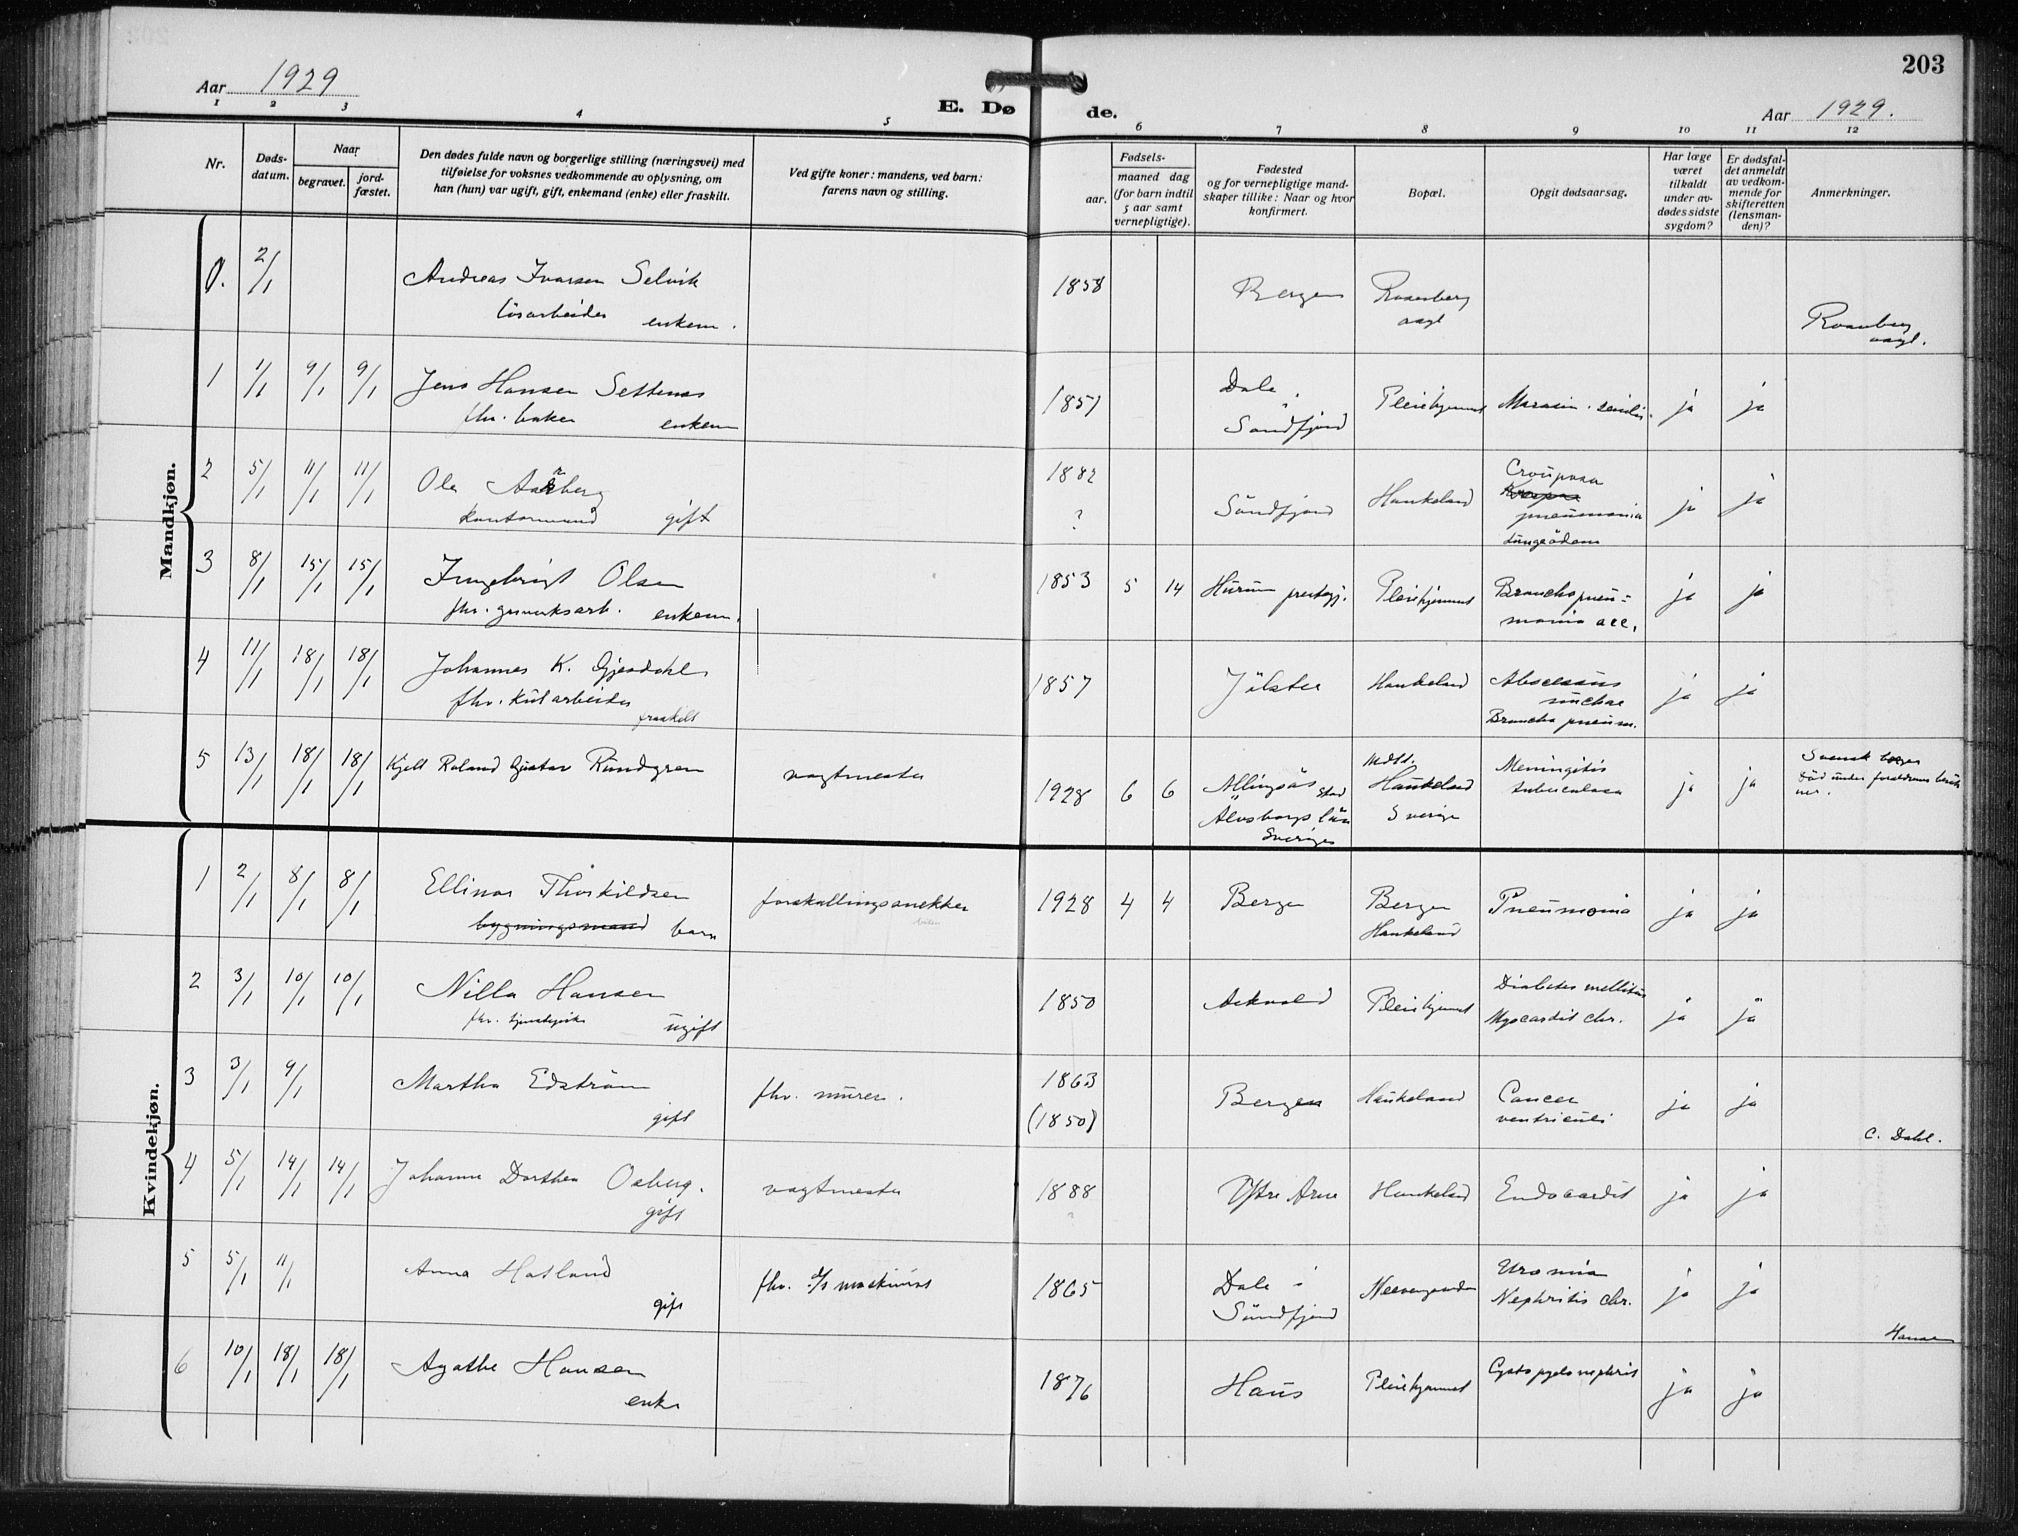 203
Aar 1929
E. Dø de.
Aar 1929.
1 2 3 4 5 6 7 8 9 10 11 12
Nr.
Døds-
datum.
Naar
begravet.
jord-
fæstet.
Den dødes fulde navn og borgerlige stilling (næringsvei) med
tilføielse for voksnes vedkommende av oplysning, om
han (hun) var ugift, gift, enkemand (enke) eller fraskilt.
Ved gifte koner: mandens, ved barn:
farens navn og stilling.
Fødsels-
aar.
maaned dag
(for barn indtil
5 aar samt
vernepligtige).
Fødested
og for vernepligtige mand-
skaper tillike: Naar og hvor
konfirmert.
Bopæl.
Opgit dødsaarsag.
Har læge
været
tilkaldt
under av-
dødes sidste
sygdom?
Er dødsfal-
det anmeldt
av vedkom-
mende for
skifteretten
(lensman-
den)?
Anmerkninger.
Mandkjøn.
0. 2/1 Andreas Ivarsen Selvik 1858 Bergen Rosenberg
løsarbeider enkem. aagt
Rosenberg
aagt.
1 1/1 9/1 9/1 Jens Hansen Settenes 1857 Dale i Pleiehjemmet Marasm. senilis. ja ja
fhv. baker enkem Søndfjord
2 5/1 11/1 11/1 Ole Aarberg 1882 Søndfjord Haukeland Crouposa ja ja
kontormand gift ? pneumonia
Lungeödem
3 8/1 15/1 15/1 Ingebrigt Olsen 1853 5 14 Hurum prestegj. Pleiehjemmet Broncho pneu- ja ja
fhv. gruveksarb. enkem. monia acc.
4 11/1 18/1 18/1 Johannes K. Gjesdahl 1857 Jölster Haukeland Abscessus ja ja
fhv. kularbeider fraskilt nuchae
Broncho pneum.
5 13/1 18/1 18/1 Kjell Roland Gustav Rundgren vagtmester 1928 6 6 Allingsås stad Mdlt. Haukeland Meningitis ja ja Svensk borger
Älvsborgs län Sverige tuberculosa Död under forældrenes besök
Sverige her.
Kvindekjøn.
1 2/1 8/1 8/1 Ellinor Thorkildsen forskallingssnekker 1928 4 4 Bergen Bergen Pneumonia ja ja
bygningsmand barn Haukeland
2 3/1 10/1 10/1 Nilla Hansen 1850 Askvold Pleiehjemmet Diabetes mellitus ja ja
fhv. tjenestepike ugift Myocardit chr.
3 3/1 9/1 Martha Edström fhv. murer. 1863 Bergen Haukeland Cancer ja ja
gift (1850) ventriculi C. Dahl.
4 5/1 14/1 14/1 Johanne Dorthea Osberg. vagtmester 1888 Ytre Arne Haukeland Endocardit ja ja
gift ?
5 5/1 11/1 Anna Hatland fhv. d/s maskinist 1865 Dale i Uromia ja ja
gift Søndfjord Nephritis chr. Hansen
6 10/1 18/1 18/1 Agathe Hansen 1876 Haus Pleiehjemmet Cysto pyelo nephrit ja ja
enke